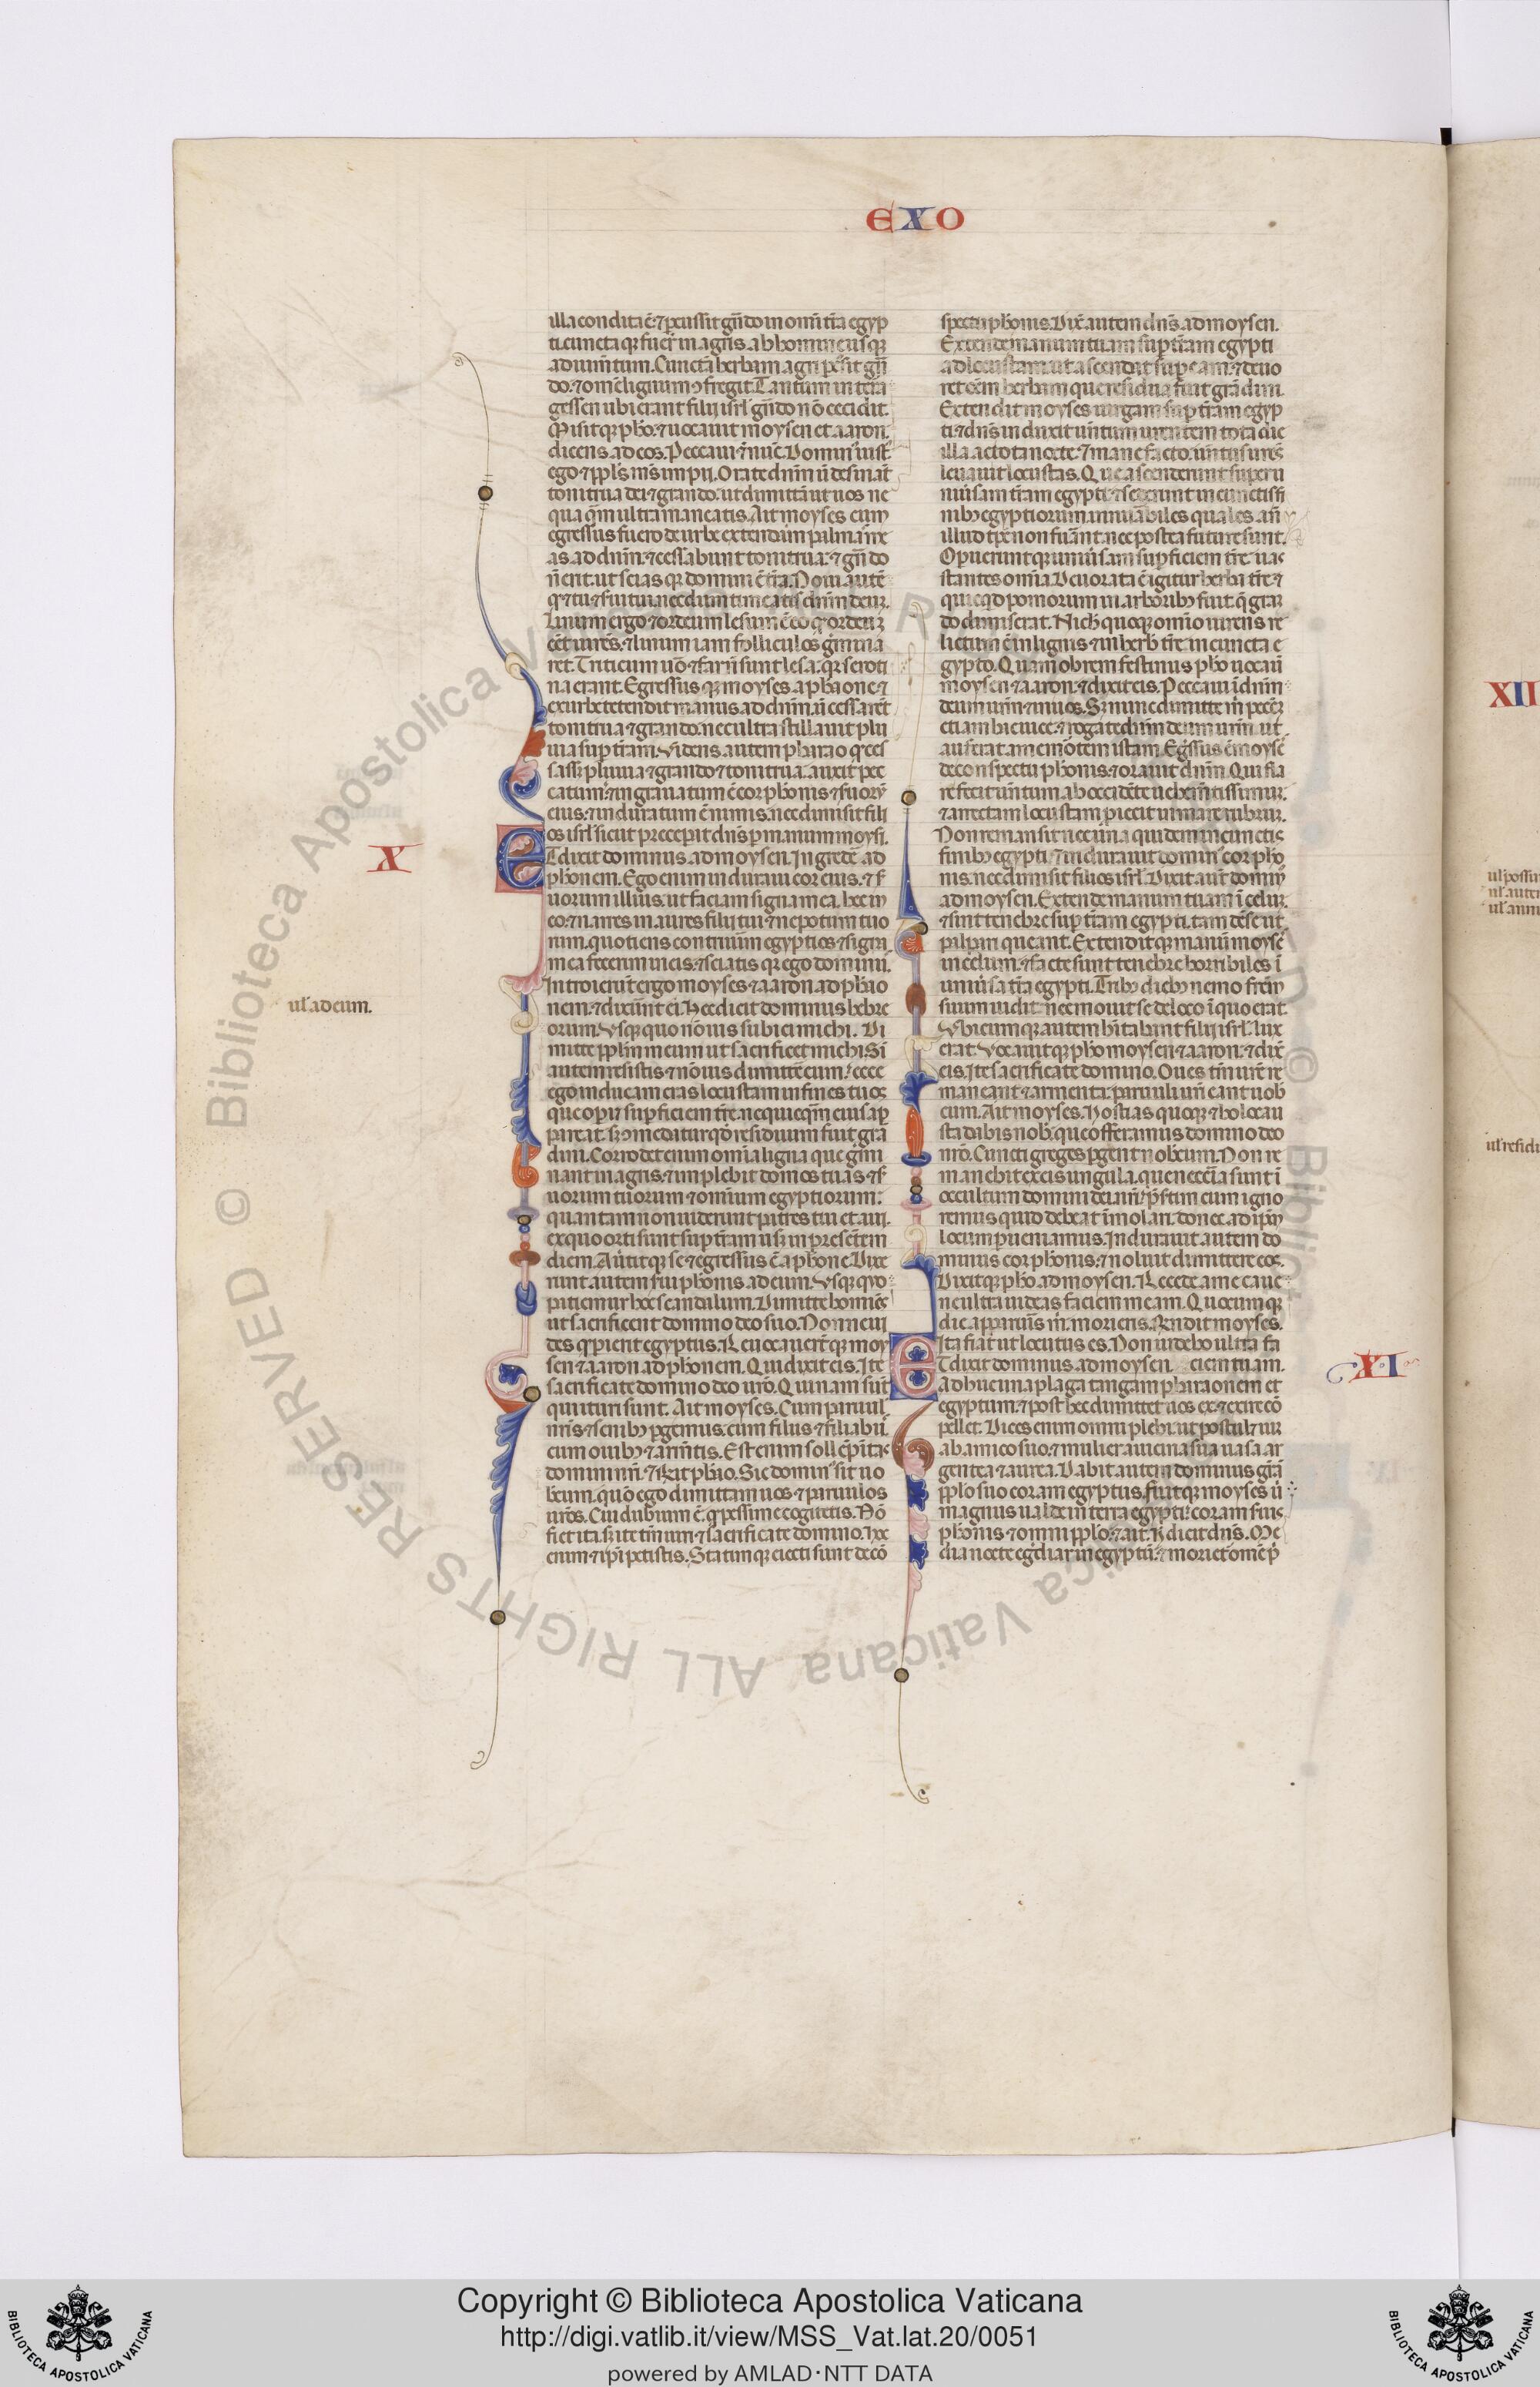 EXO
illa condita ē. ⁊ ꝑcussit gͣndo in omī tͬra egyp
ti cuncta q̄ fuerͭ in agrıs. ab homine usq̨
ad iumͭtum. Cunctā herbam agri ꝑcͣsit gͣn
do. ⁊ om̄e lignum ꝯfregit. Tantum in terra
gessen ubi erant filij isrl̓ gͣndo nō cecidit.
Misitq̨ phͦ. ⁊ uocauit moysen et aaron.
dicens ad eos. Peccaui ⁊ nūc. Domin᷒ iust᷒
ego ⁊ ppl̓s ms̄ impij. Orate dn̄m ū desināt
tonitrua dei ⁊ grando. ut dimittā ut uos ne
qua q̄m ultra maneatis. Ait moyses cum
egressus fuero de urbe extendam palmas me
as ad dn̄m. ⁊ cessabunt tonitrua. ⁊ gͣndo
n̄ erit. ut scias qꝛ domini ē tͬra. Noui autē
q̄ ⁊ tu ⁊ ſui tui. necdum timeatis dn̄m deuʒ.
Linum ergo ⁊ ordeum lesum ē. eo qꝫ ordeuʒ
eēt uirēs. ⁊ linum iam folliculos gͥmina
ret. Triticum uͦo ⁊ farͥ ñ sunt lesa. qꝛ seroti
na erant. Egressus q̨ moyses a pharaone ⁊
ex urbe tetendit manus ad dn̄m. ⁊ cessarēt
tonitrua ⁊ grando. nec ultra stillauit plu
uia suꝑ tͬram. Videns autem pharao qꝫ ces
sassꝫ pluuia ⁊ grando ⁊ tonitrua. auxit pec
catum. ⁊ ingrauatum ē cor phonis ⁊ seruorꝫ
eius. ⁊ induratum ē nimis. nec dimisit fili
os isrl̓ sicut precepit dn̄s ꝑ manum moysi.
X
Et dixit dominus ad moysen. Ingredē ad
phonem. Ego enim induraui cor eius. ⁊ s
uorum illius. ut faciam signa mea hec in
eo. ⁊ narres in aures filij tui ⁊ nepotum tuo
rum. quotiens contriuim egyptios ⁊ signa
mea fecerim in eis. ⁊ sciatis qꝛ ego dominꝰ.
Introierunt ergo moyses ⁊ aaron ad phao
ul̓ ad eum.
nem. ⁊ dixerūt ei. Hec dicit dominus hebre
orum. Usq̨ quo nō uis subici michi. Di
mitte ppl̓m meum ut sacrificet michi. Si
autem resistis ⁊ nō uis dimittē eum. ecce
ego inducam cras locustam in fines tuos
que operiͣ suꝑficiem tr̄e. ne quicqm̄ eius ap
pareat. sꝫ comedatur qd̓ residuum fuit grā
dini. Corrodet enim omnia ligna que gͥmi
nant in agris. ⁊ implebit domos tuas ⁊ s
uorum tuorum ⁊ omnium egyptiorum.
quantam non uiderunt patres tui et aui.
ex quo orti sunt suꝑ tͬram usꝫ in presētem
diem. Auertitq̨ se ⁊ egressus ē a phone. Dixe
runt autem ſui phonis ad eum. Usq̨ quo
patiemur hoc scandalum. Dimitte homīes
ut sacrificent domino deo suo. Nonne ui
des qꝫ pierit egyptus. Reuocauerͭq̨ moy
sen ⁊ aaron ad phonem. Qui dixit eis. Ite
sacrificate domino deo uro. Quinam sūt
qui ituri sunt. Ait moyses. Cum paruul̓
nr̄is ⁊ senibꝫ pergemus. cum filiis ⁊ filiabꝫ.
cum ouibꝫ ⁊ armͭtis. Est enim sollēpnitas
domini nr̄i. ⁊ rn̄dit phao. Sic domin᷒ sit uo
biscum. quō ego dimittam uos ⁊ paruulos
uros. Cui dubium ē. qꝫ pessime cogitetis. Nō
fiet ita. sꝫ ite tm̄ uiri ⁊ sacrificate domino. Hoc
enim ⁊ ipi petistis. Statimq̨ eiecti sunt de cō
spectu phonis. Dixͭ autem dn̄s ad moysen.
Extende manum tuam suꝑ tͬram egypti
ad locustam. ut ascendat suꝑ eam. ⁊ deuo
ret oēm herbam que residua fuit grādini.
Extendit moyses uirgam suꝑ tͬram egyp
ti. ⁊ dn̄s induxit uentum urentem tota die
illa ac tota nocte. ⁊ mane facto uentus urēs
leuauit locustas. Que ascenderunt super u
niuͥsam tͬram egypti. ⁊ sederunt in cunctis fi
nibꝫ egyptiorum innumͣbiles quales an̄
illud tp̄s non fuͣnt. nec postea future sunt.
Operuerunt q̨ uniuͥsam suꝑficiem tͬre. uas
stantes omīa. Deuorata ē igitur herba tr̄e ⁊
quicqd̓ pomorum in arboribꝫ fuit. q̄ gran
do dimiserat. Nichl̓ quoq̨ omīno uirens re
lictum ē in lignis. ⁊ in herbis tr̄e in cuncta e
gypto. Quamobrem festinus phao uocauͭ
moysen ⁊ aaron. ⁊ dixit eis. Peccaui ī dn̄m
deum urm̄ ⁊ in uos. Sꝫ nunc dimitte m̄ peccͣʒ
etiam hac uice. ⁊ rogate dn̄m deum urm̄. ut
auferat a me mortem istam. Egressus ē moysē
de conspectu phonis. ⁊ orauit dn̄m. Qui fla
re fecit uentum ab occidēte uehemͭtissimum.
⁊ arreptam locustam piecit in mare rubrum.
Non remansit nec una quidem in cunctis
finibꝫ egypti. ⁊ indurauit domin᷒ cor phao
nis. nec dimisit filios isrl̓. Dixit autͭ dominꝰ
ad moysen. Extende manum tuam ī celum.
⁊ sint tenebre suꝑ tͬram egypti. tam dēse ut
palpari queant. Extenditq̨ manū moysē
in celum. ⁊ facte sunt tenebre horribiles ī
uniuͥsa tͬra egypti. Tribꝫ diebꝫ nemo frēm
suum uidit. nec mouit se de loco ī quo erat.
Ubicumq̨ autem habitabant filij isrl̓. lux
erat. Vocauitq̨ phao moysen ⁊ aaron. ⁊ dixͭ
eis. Ite sacrificate domino. Oues tm̄ ure re
maneant ⁊ armenta. paruuli uri eant uob̓
cum. Ait moyses. Hostias quoq̨ ⁊ holocau
sta dabis nob̓. que offeramus domino deo
nr̄o. Cuncti greges pergent nobiscum. Non re
manebit ex eis ungula. que necēͣia sunt ī
occultum domini dei nr̄i. p̄sertim cum igno
remus quid debeat īmolari. donec ad ip̄m
locum ꝑueniamus. Indurauit autem do
minus cor phonis. ⁊ noluit dimittere eos.
Dixitq̨ phao ad moysen. Recede a me. caue
ne ultra uideas faciem meam. Quocumq̨
die apparueris m̄. morieris. Rn̄dit moyses.
Ita fiat ut locutus es. Non uidebo ultra fa
XI
Et dixit dominus ad moysen ciem tuam.
Adhuc una plaga tangam pharaonem et
egyptum. ⁊ post hec dimittet uos ex ⁊ exire cō
pellet. Dices enim omni plebi. ut postulet uir
ab amico suo. ⁊ mulier a uicina sua uasa ar
gentea ⁊ aurea. Dabit autem dominus grām
ppl̓o suo coram egyptiis. Fuitq̨ moyses uͥ
magnus ualde in terra egypti. coram seruis
phonis ⁊ omni ppl̓o. ⁊ ait. Hͨ dicit dn̄s. Me
dia nocte egrediar in egyptū. ⁊ morietͬ om̄e pͥ
XII
Copyright © Biblioteca Apostolica Vaticana
http://digi.vatlib.it/view/MSS_Vat.lat.20/0051
powered by AMLAD·NTT DATA
BIBLIOTECA APOSTOLICA VATICANA
BIBLIOTECA APOSTOLICA VATICANA